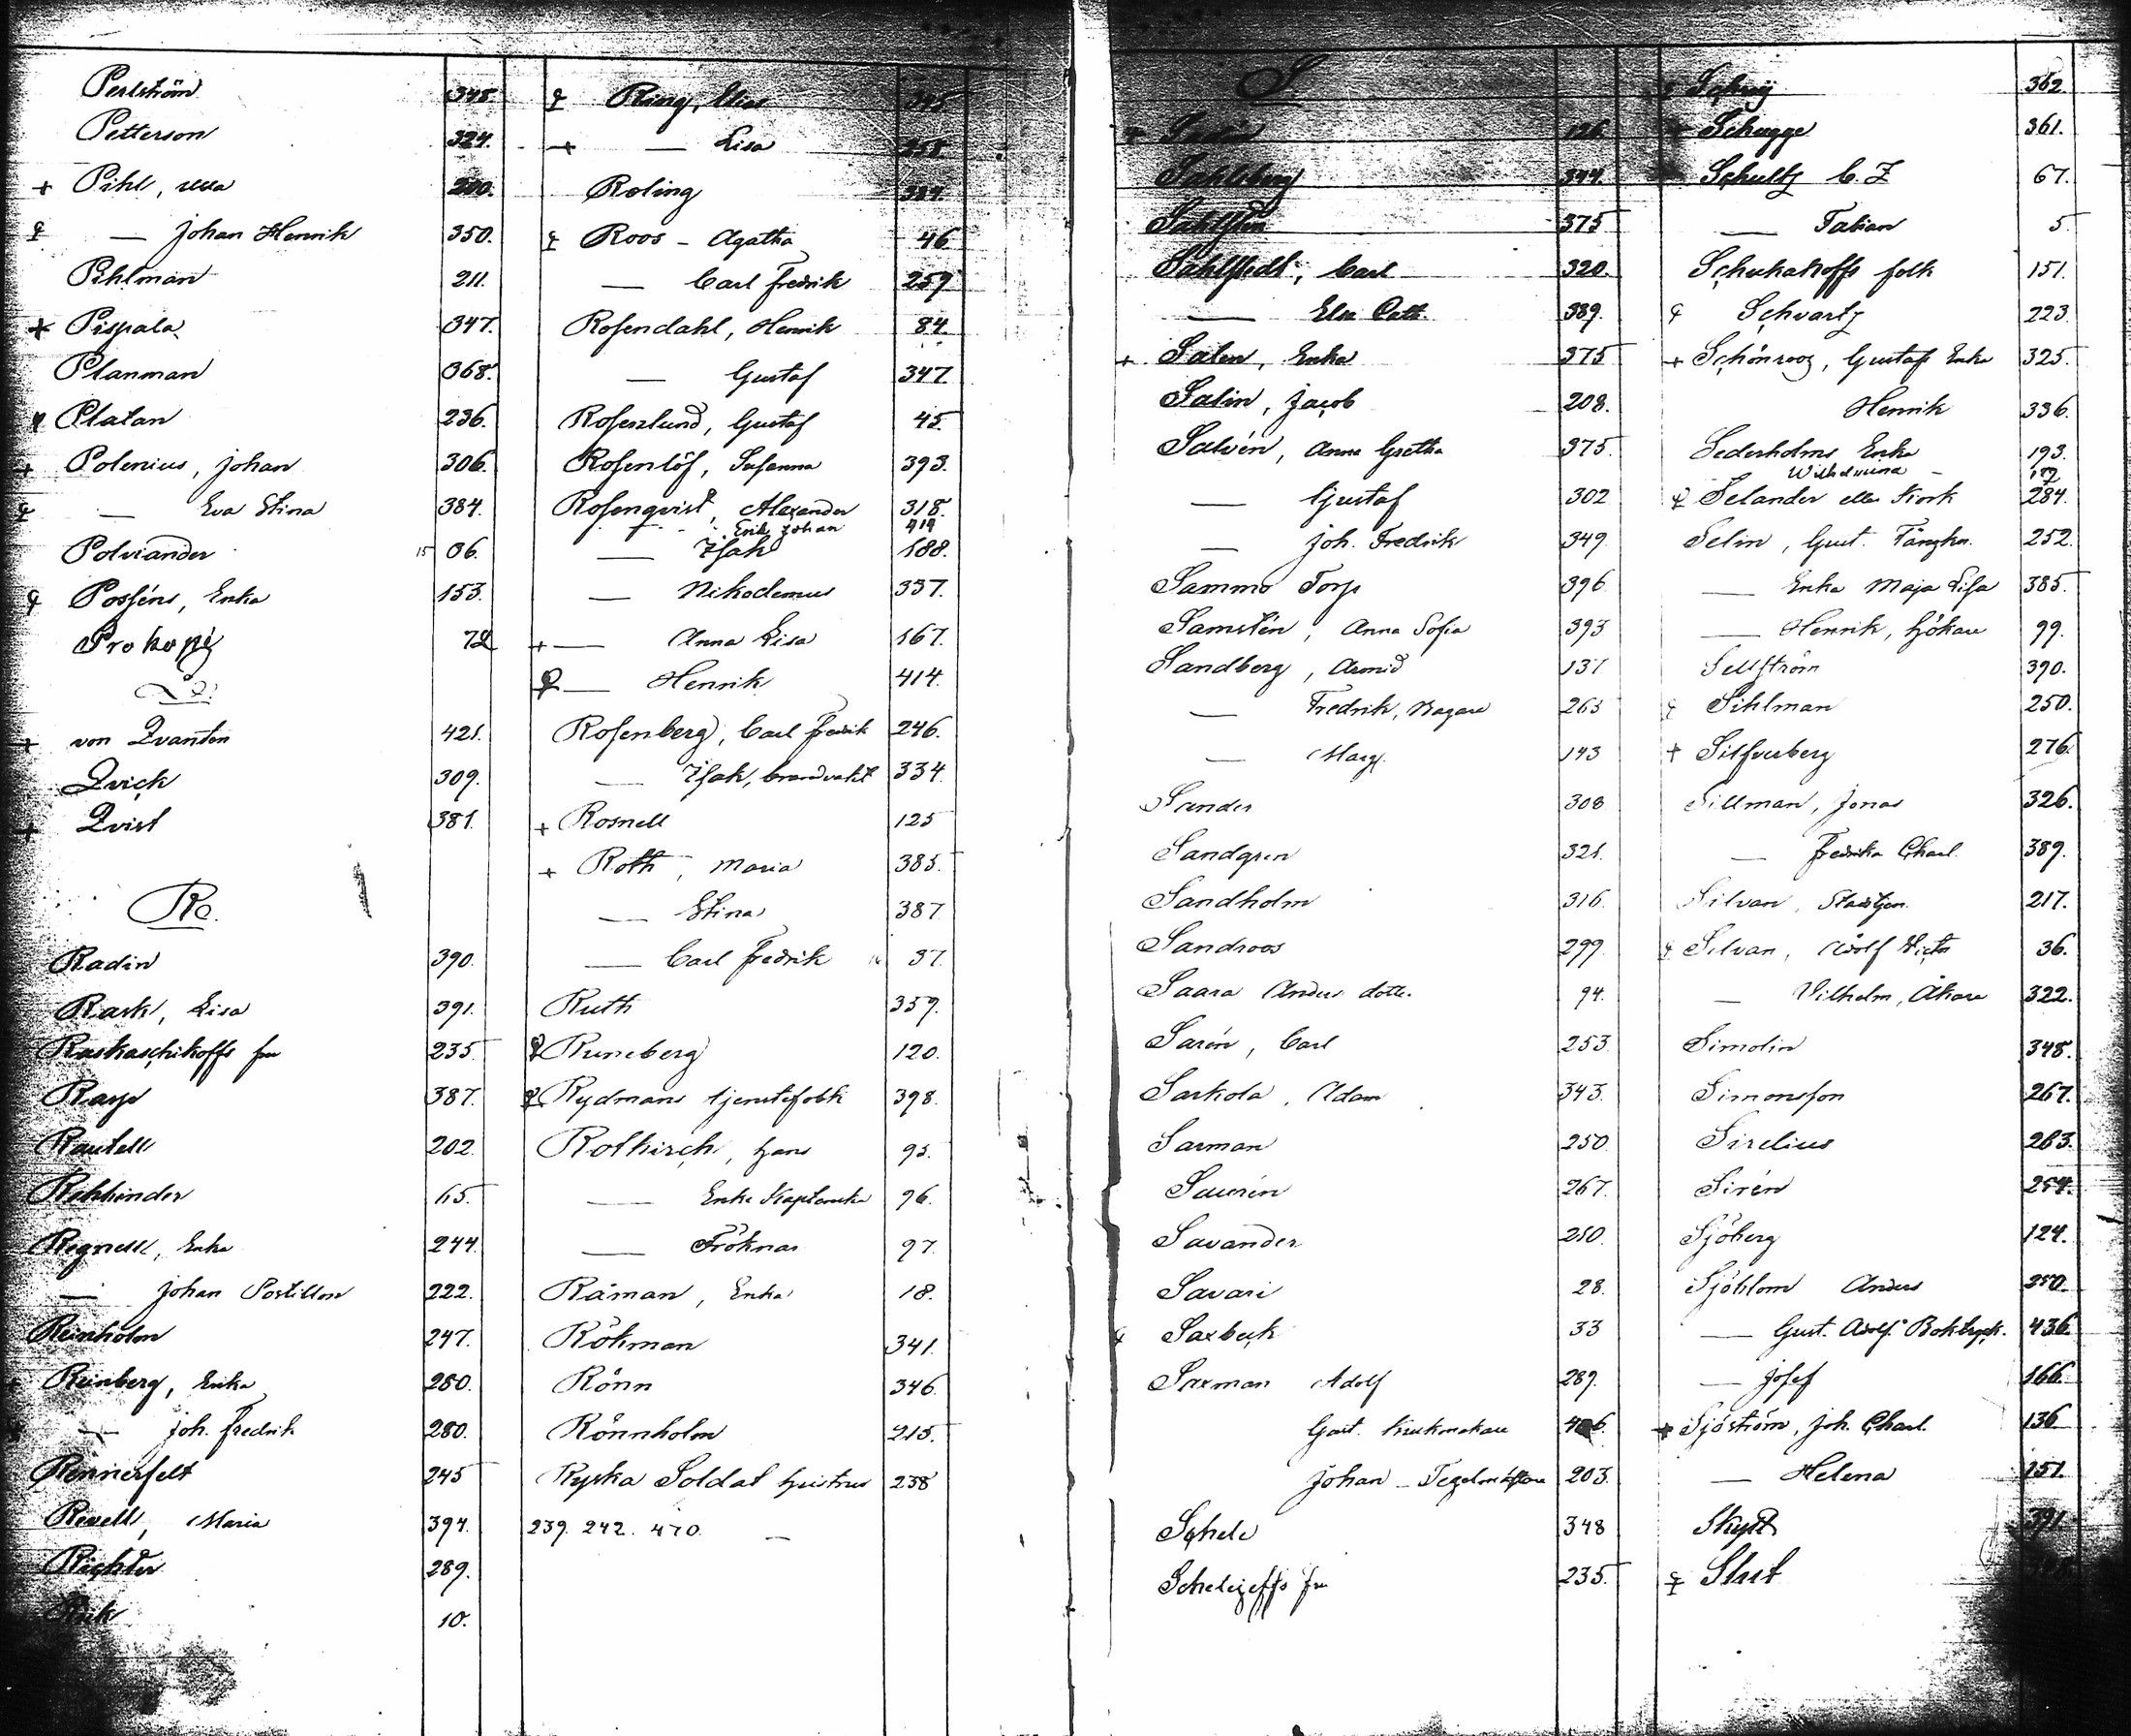 Perlström 345.
Petterson 324.
+ Pihl, Ulla 200.
♀ — Johan Henrik 350.
Pihlman 211.
+ Pispala 347.
Planman 368.
Platan 236.
+ Polenius, Johan 306.
♀ — Eva Stina 384.
Polviander 15 06.
♀ Posséns, Enka 153.
Prokopé 72
Q.
+ von Qvanten 421.
Qvick 309.
+ Qvist 381.
R.
Radin 390.
Rask, Lisa 391.
Raskaschikoffs fru 235.
Rasp 387.
Rautell 202.
Rehbinder 65.
Regnell, Enka 244.
— Johan Postillon 222.
Reinholm 247.
+ Reinberg, Erika 280.
— Joh. Fredrik 280.
Rennerfelt 245
Rexell, Maria 394.
Richter 289.
10.
♀ Ring, Elias 345
+ — Lisa 258.
Roling 384.
♀ Roos - Agatha 46
— Carl Fredrik 259
Rosendahl, Henrik 84.
— Gustaf 347.
Rosenlund, Gustaf 45.
Rosenlöf, Susanna 393.
Rosenqvist, Alexander 318.
Erik Johan 414
— Isak 188.
— Nikodemus 337.
+ — Anna Lisa 167.
♀ — Henrik 414.
Rosenberg, Carl Fredrik 246.
— Isak, brandvakt 334.
+ Rosnell 125
+ Roth, Maria 385.
— Stina 387
— Carl Fredrik 37.
Ruth 359.
♀ Runeberg 120.
♀ Rydmans tjenstefolk 398.
Rotkirch, Hans 95.
— Enka Kaptenska 96.
— Fröknar 97.
Råman, Enka 18.
Rökman 341.
Rönn 346.
Rönnholm 215.
Ryska Soldat hustrur 238
239. 242. 470. —
S.
126.
Sahlberg 344.
375
Sahlstedt, Carl 320.
— Elsa Cath. 389.
+ Salen, Enka 375
Salin, Jacob 208.
Salvén, Anna Gretha 375.
— Gustaf 302
— Joh. Fredrik 349
Sammo Torp 396
Samstén, Anna Sofia 393
Sandberg, Arvid 131
— Fredrik, Bagare 263
— Marg. 143
Sander 308
Sandgren 321.
Sandholm 316.
Sandroos 299
Saara Anders dotter 94.
Sarén, Carl 253
Sarkola, Adam 343.
Sarman 250
Saurén 267.
Savander 250.
Savari 28.
♀ Saxbeck 33
Saxman Adolf 289.
Gust. Krukmakare
Johan - Tegelmästare 203.
Schele 348
Schelejeffs fru 235.
362.
Schugge 361.
Schultz C. Z 67.
— Fabian 5
Schukakoffs folk 151.
♀ Schvartz 223
+ Schönroos, Gustafs Enka 325.
Henrik 336.
Sederholms Enka 193.
Wilhelmina -
♀ Selander eller Kiork 284.
Selin, Gust. Fångkn. 252.
— Enka Maja Lisa 385.
— Henrik, Hökare 99.
Sellström 390.
♀ Sihlman 250.
+ Silfverberg 276.
Sillman, Jonas 326.
— Fredrika Charl. 389.
Silvan, Stadstjen. 217.
♀ Silvan, Adolf Victor 36.
— Vilhelm, Åkare 322.
Simolin 348.
Simonsson 267.
Sirelius 263.
Sirén 254.
Sjöberg 124.
Sjöblom Anders 250.
— Gust. Adolf. Boktryck. 436.
— Josef 166.
+ Sjöström, Joh. Charl. 136
— Helena 151.
Skytt 391.
♀ Slut